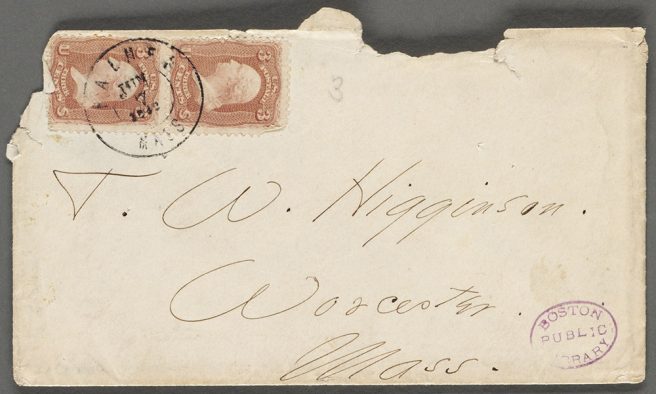 PALMER
JUN
7
1862
MASS
U S
3 3
3
T. W. Higginson.
Worcester.
Mass.
BOSTON
PUBLIC
LIBRARY